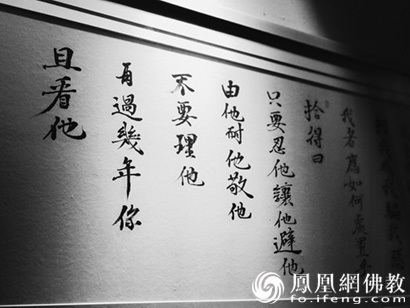 者應如何處置
拾得曰
只要忍他讓他避他
由他耐他敬他
不要理他
再過幾年你
且看他
鳳凰網佛教
fo.ifeng.com